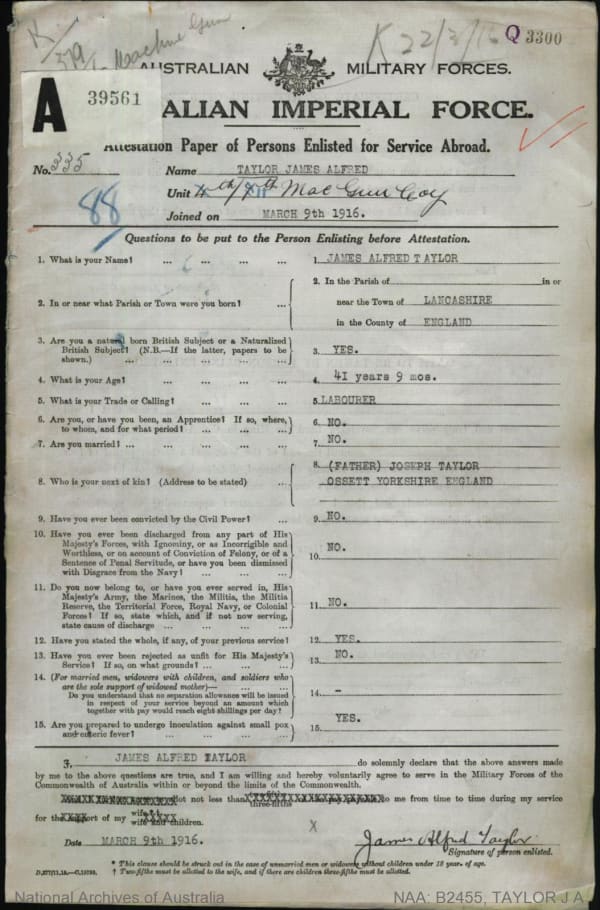 K 22/3/16 Q 3300
K/379/1 Machine Gun
AUSTRALIAN MILITARY FORCES.
A 39561
ALIAN IMPERIAL FORCE.
Attestation Paper of Persons Enlisted for Service Abroad.
No. 335 Name TAYLOR JAMES ALFRED
Unit Mac Gun Coy
88 Joined on MARCH 9th 1916.
Questions to be put to the Person Enlisting before Attestation.
1. What is your Name? ... ... ... ... 1. JAMES ALFRED TAYLOR
2. In or near what Parish or Town were you born? ... 2. In the Parish of in or
near the Town of LANCASHIRE
in the County of ENGLAND
3. Are you a natural born British Subject or a Naturalized
British Subject? (N.B.—If the latter, papers to be
shown.) ... ... ... ... 3. YES.
4. What is your Age? ... ... ... ... 4. 41 years 9 mos.
5. What is your Trade or Calling? ... ... ... 5. LABOURER
6. Are you, or have you been, an Apprentice? If so, where,
to whom, and for what period? ... ... ... 6. NO.
7. Are you married? ... ... ... ... ... 7. NO.
8. Who is your next of kin? (Address to be stated) ... 8. (FATHER) JOSEPH TAYLOR
OSSETT YORKSHIRE ENGLAND
9. Have you ever been convicted by the Civil Power? ... 9. NO.
10. Have you ever been discharged from any part of His
Majesty's Forces, with Ignominy, or as Incorrigible and
Worthless, or on account of Conviction of Felony, or of a
Sentence of Penal Servitude, or have you been dismissed
with Disgrace from the Navy? ... ... ... 10. NO.
11. Do you now belong to, or have you ever served in, His
Majesty's Army, the Marines, the Militia, the Militia
Reserve, the Territorial Force, Royal Navy, or Colonial
Forces? If so, state which, and if not now serving,
state cause of discharge ... ... ... ... 11. NO.
12. Have you stated the whole, if any, of your previous service? 12. YES.
13. Have you ever been rejected as unfit for His Majesty's
Service? If so, on what grounds? ... ... ... 13. NO.
14. (For married men, widowers with children, and soldiers who
are the sole support of widowed mother)— ... ...
Do you understand that no separation allowance will be issued
in respect of your service beyond an amount which
together with pay would reach eight shillings per day? 14. -
15. Are you prepared to undergo inoculation against small pox
and enteric fever? ... ... ... ... 15. YES.
I, JAMES ALFRED TAYLOR do solemnly declare that the above answers made
by me to the above questions are true, and I am willing and hereby voluntarily agree to serve in the Military Forces of the
Commonwealth of Australia within or beyond the limits of the Commonwealth.
allot not less than three-fifths to me from time to time during my service
for the support of my wife
wife and children.
Date MARCH 9th 1916. X James Alfred Taylor
Signature of person enlisted.
* This clause should be struck out in the case of unmarried men or widowers without children under 18 year of age.
† Two-fifths must be allotted to the wife, and if there are children three-fifths must be allotted.
National Archives of Australia NAA: B2455, TAYLOR J A